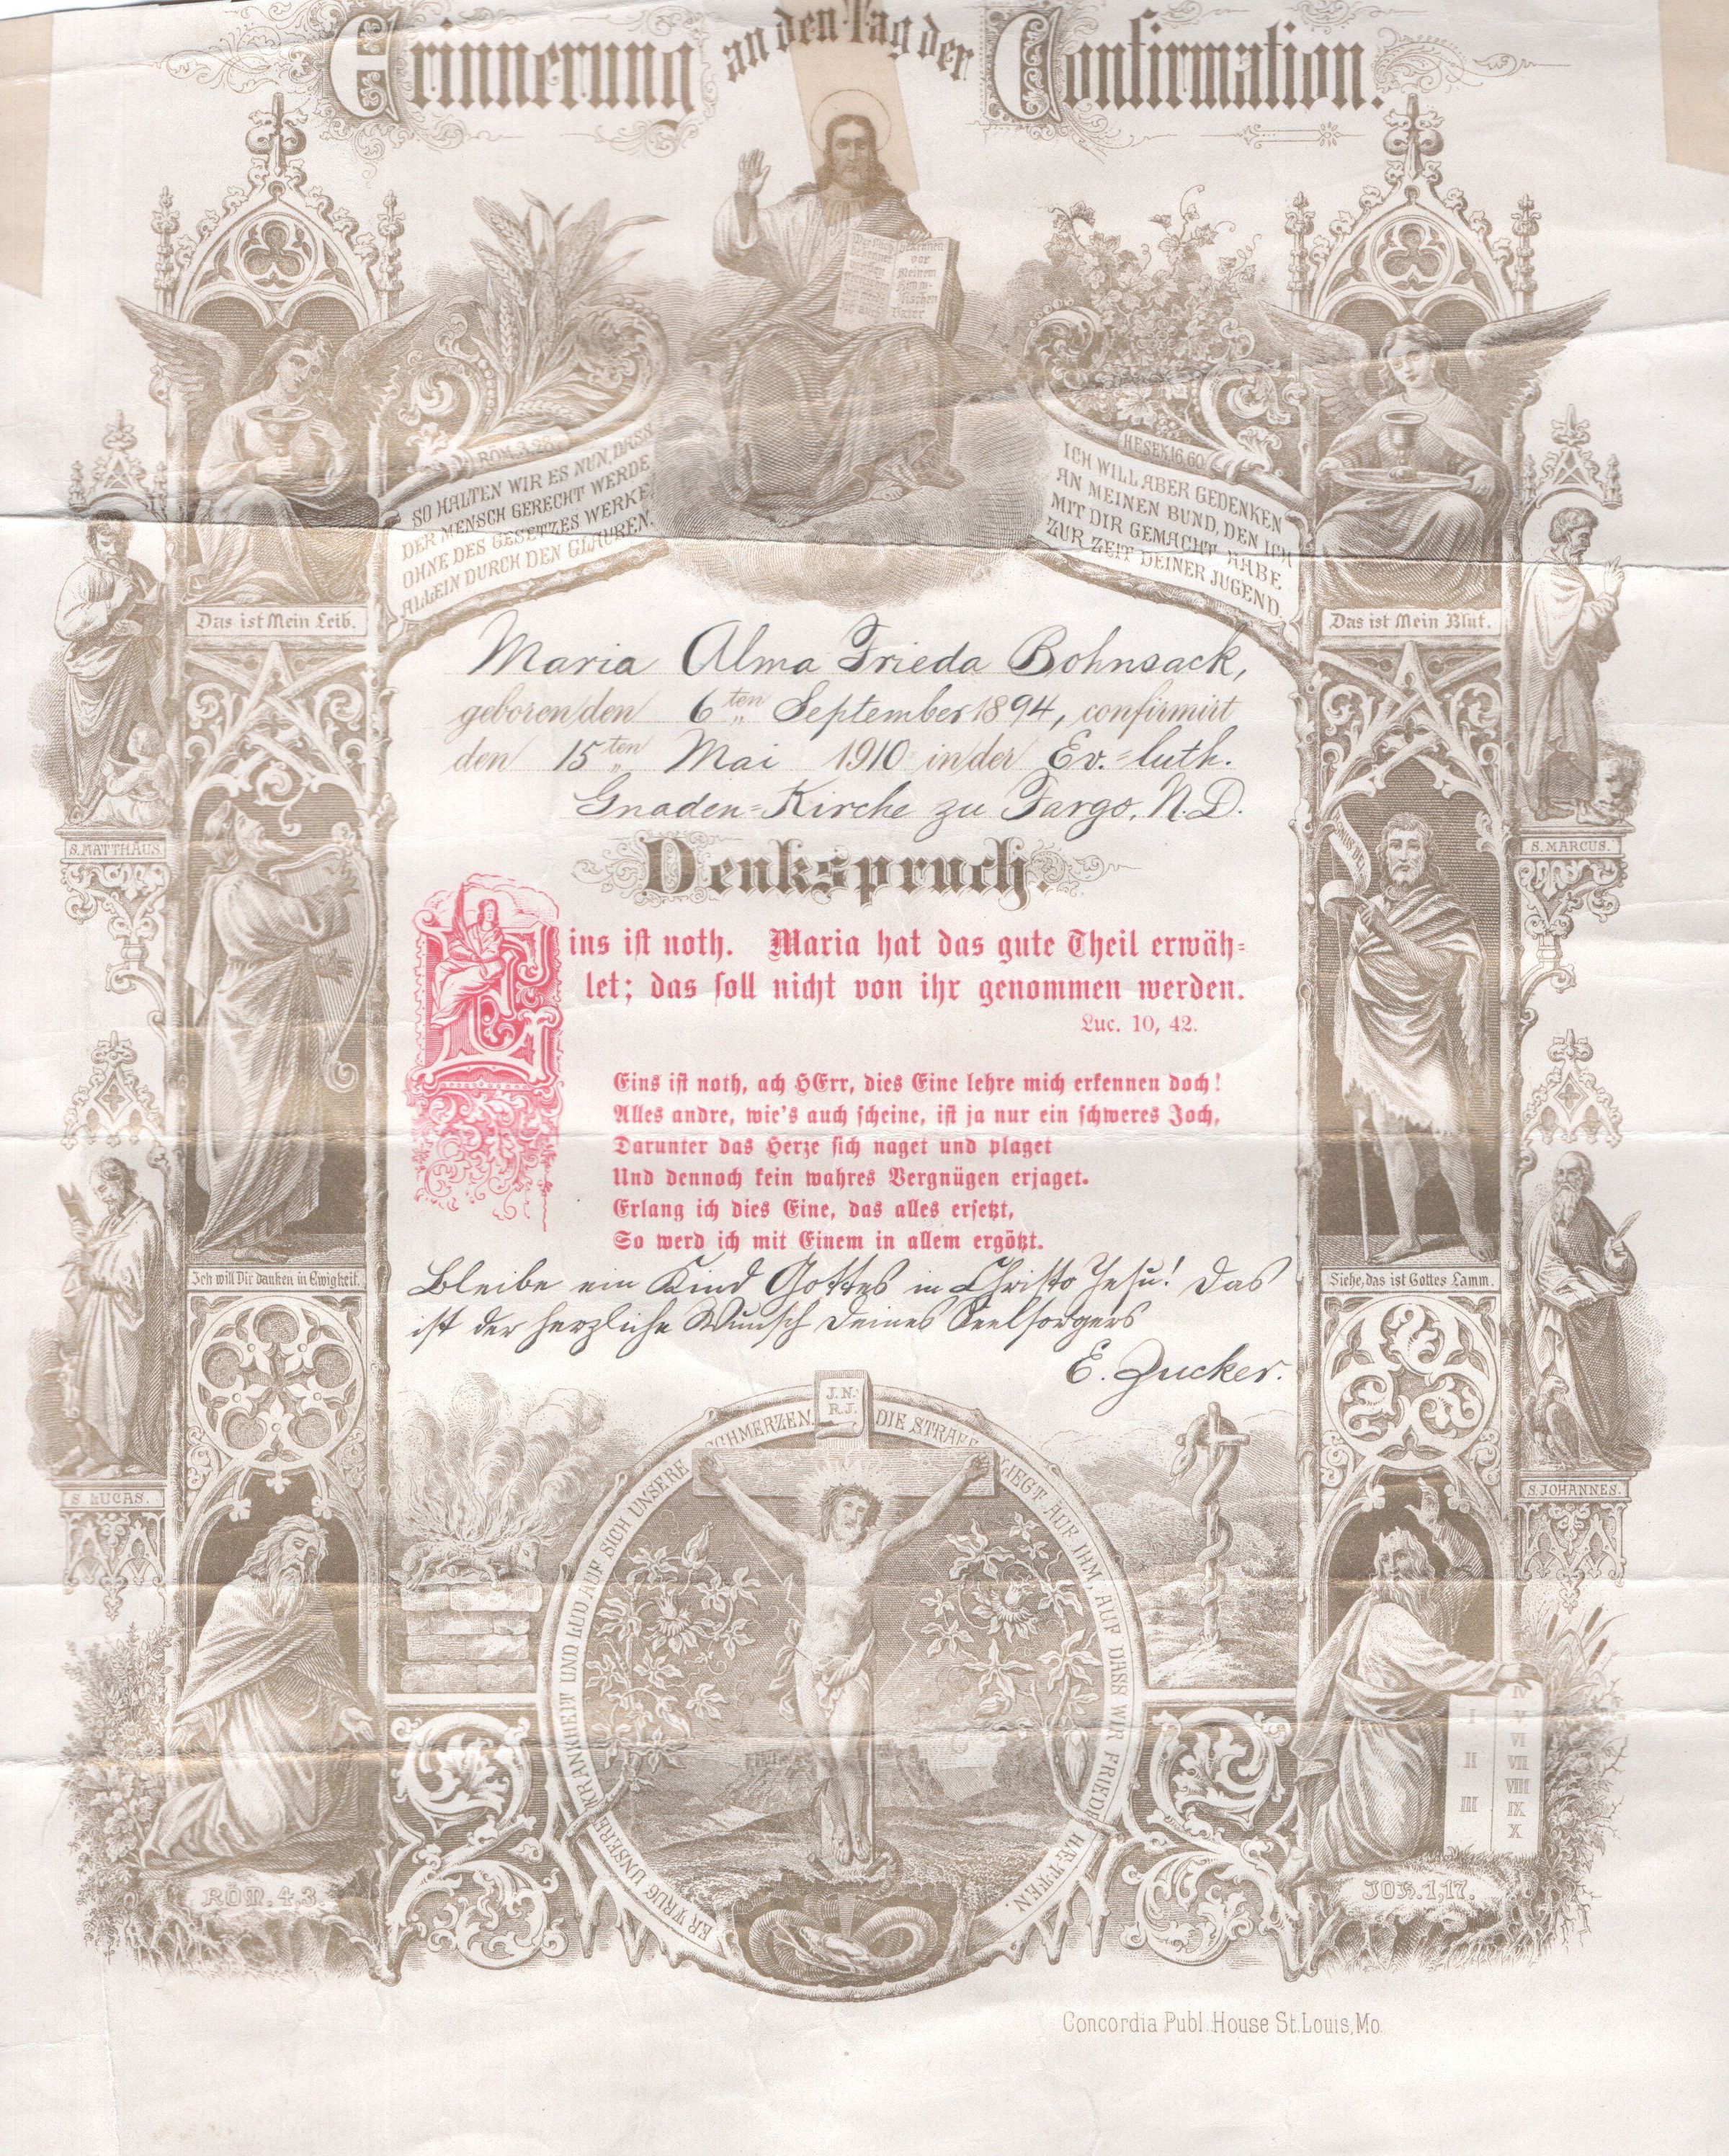 Erinnerung an den Tag der Confirmation.
Wer Mich bekennet vor den Menschen den will Ich auch bekennen vor Meinem himmlischen Vater
RÖM. 3. 28.
SO HALTEN WIR ES NUN, DASS
DER MENSCH GERECHT WERDE
OHNE DES GESETZES WERKE,
ALLEIN DURCH DEN GLAUBEN.
HESEK. 16. 60.
ICH WILL ABER GEDENKEN
AN MEINEN BUND, DEN ICH
MIT DIR GEMACHT HABE
ZUR ZEIT DEINER JUGEND.
Das ist Mein Leib.
Das ist Mein Blut.
Maria Alma Frieda Bohnsack,
geboren den 6ten September 1894, confirmirt
den 15ten Mai 1910 in der Ev.=luth.
Gnaden=Kirche zu Fargo, N. D.
S. MATTHÄUS.
S. MARCUS.
Denkspruch.
Eins ist noth. Maria hat das gute Theil erwäh=
let; das soll nicht von ihr genommen werden.
Luc. 10, 42.
Eins ist noth, ach HErr, dies Eine lehre mich erkennen doch!
Alles andre, wie's auch scheine, ist ja nur ein schweres Joch,
Darunter das Herze sich naget und plaget
Und dennoch kein wahres Vergnügen erjaget.
Erlang ich dies Eine, das alles ersetzt,
So werd ich mit Einem in allem ergötzt.
Ich will Dir danken in Ewigkeit.
Siehe, das ist Gottes Lamm.
Bleibe ein Kind Gottes in Christo Jesu! Das
ist der herzliche Wunsch Deines Seelsorgers
E. Zucker.
S. LUCAS.
S. JOHANNES.
J. N.
R. J.
ER TRUG UNSERE KRANKHEIT UND LUD AUF SICH UNSERE SCHMERZEN. DIE STRAFE LIEGT AUF IHM, AUF DASS WIR FRIEDE HÆTTEN.
I
II
III
IV
V
VI
VII
VIII
IX
X
RÖM. 4. 3.
JOH. 1, 17.
Concordia Publ. House St. Louis, Mo.